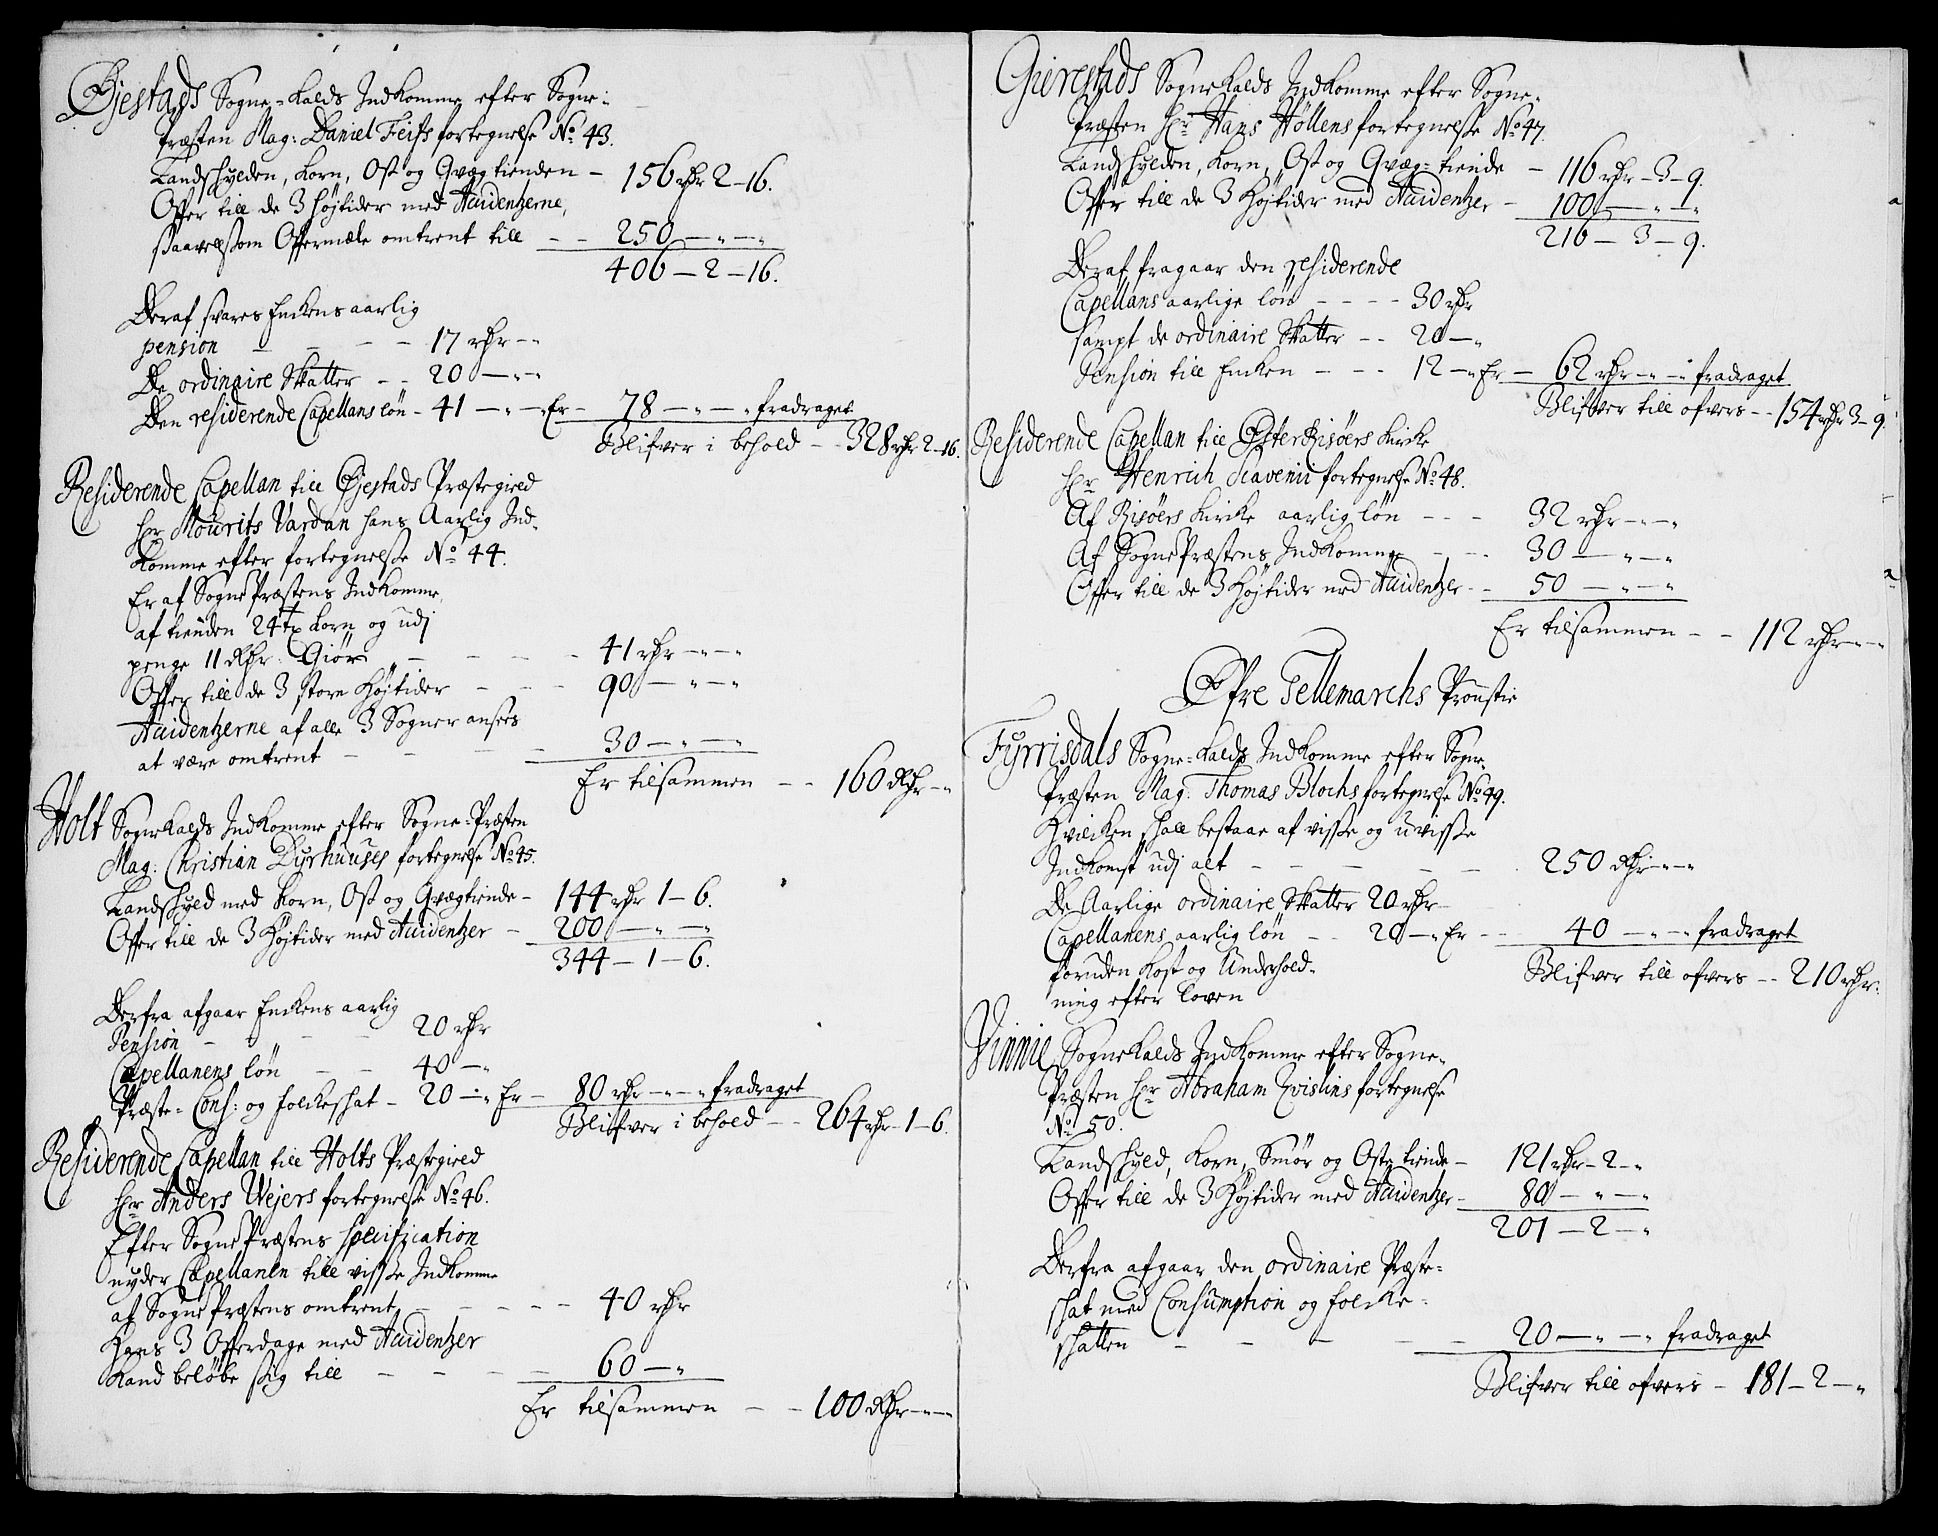 Øjestads Sogne-Kalds Indkomme efter Sogne-
Præsten Mag: Daniel Feifs fortegnelse No. 43.
Landschylden, Korn, Ost og Qvægtienden – 156 rdr 2–16.
Offer till de 3 Højtider med Auidentzerne,
saavelssom Offermæle omtrent till – – 250 – „ – „
406 – 2 – 16.
Deraf svares Enckens aarlig
pension – – – – 17 rdr – „
De ordinaire Skatter – – 20 – „ – „
Den residerende Capellans løn – 41 – „ – „ Er – 78 – „ – „ fradraget
Blifver i behold – – 328 rdr 2–16.
Residerende Capellan till Øjestads Præstegield
Hr Mourits Vardan hans Aarlig Ind-
komme efter fortegnelsse No 44.
Er af SognePræstens Indkomme,
af tienden 24 tr Korn og udj
penge 11 Rdr. Giør – – – – 41 rdr – „ – „
Offer till de 3 store Højtider – – – 90 – „ – „
Auidentzerne af alle 3 Sogner ansees
at være omtrent – – – – 30 – „ – „
Er tilsammen – – 160 Rdr – „
Holt SogneKalds Indkomme efter Sogne-Præsten
Mag: Christian Dyrhuuses fortegnelse No 45.
Landschyld med Korn, Ost og Qvægtiende – 144 rdr 1–6.
Offer till de 3 Højtider med Auidentzer – 200 – „ – „
344 – 1 – 6.
Derfra afgaar Enckens aarlig
Pension – – – – 20 rdr
Capellanens løn – – 40 – „
Præste-Cons: og folkeschat – 20 – „ Er – 80 rdr – „ – „ fradraget
Blifver i behold – – 264 rdr – 1 – 6.
Residerende Capellan till Holts Præstegield
Hr Anders Wejers fortegnelse No 46.
Efter SognePræstens specification
nyder Capellanen till visse Indkomme
af SognePræstens omtrent – – – – – 40 rdr
Hans 3 Offerdage med Auidentzer
Kand beløbe sig till – – – – 60 – „
Er tilsammen – – 100 Rdr – „ – „
Gierestads SogneKalds Indkomme efter Sogne-
Præsten Hr Hans Høllens fortegnelsse No 47.
Landschylden, Korn, Ost og Qvæg-tiende – 116 rdr – 3 – 9.
Offer till de 3 Højtider med Auidentzer – 100 – „ – „
216 – 3 – 9.
Deraf fragaar den residerende
Capellans aarlige løn – – – – 30 rdr
sampt de ordinaire Skatter – – 20 – „
Pension till Encken – – – 12 – „ Er – 62 rdr – „ – „ fradraget
Blifver till ofvers – – 154 rdr 3–9.
Residerende Capellan till ØsterRisøers Kircke
Hr Henrich Scavenii fortegnelse No 48.
Af Risøers Kircke aarlig løn – – – 32 rdr – „ – „
Af SognePræstens Indkomme – – – 30 – „ – „
Offer till de 3 Højtider med Auidentzer – – 50 – „ – „
Er tilsammen – – 112 rdr – „ – „
Øfre Tellemarchs Proustie
Fyrrisdals Sogne-Kalds Indkomme efter Sogne-
Præsten Mag. Thomas Blochs fortegnelse No 49.
Hvilcken schall bestaae af visse og uvisse
Indkomst udj alt – – – – – 250 Rdr – „ – „
De Aarlige ordinaire Skatter 20 rdr –
Capellanens aarlig løn – – 20 – „ Er – – 40 – „ – „ fradraget
foruden Kost og Underhold-
ning efter Loven
Blifver till ofvers – – 210 rdr.
Vinnie SogneKalds Indkomme efter Sogne-
Præsten Hr Abraham Evislins fortegnelse
No 50.
Landschyld, Korn, Smør og Oste tiende – 121 rdr – 2 – „
Offer till de 3 Højtider med Auidentzer – 80 – „ – „
201 – 2 – „
Derfra afgaar den ordinaire Præste-
schat med Consumption og folcke-
schatten – – – – – 20 – „ – „ fradraget
Blifver till ofvers – 181 – 2 – „